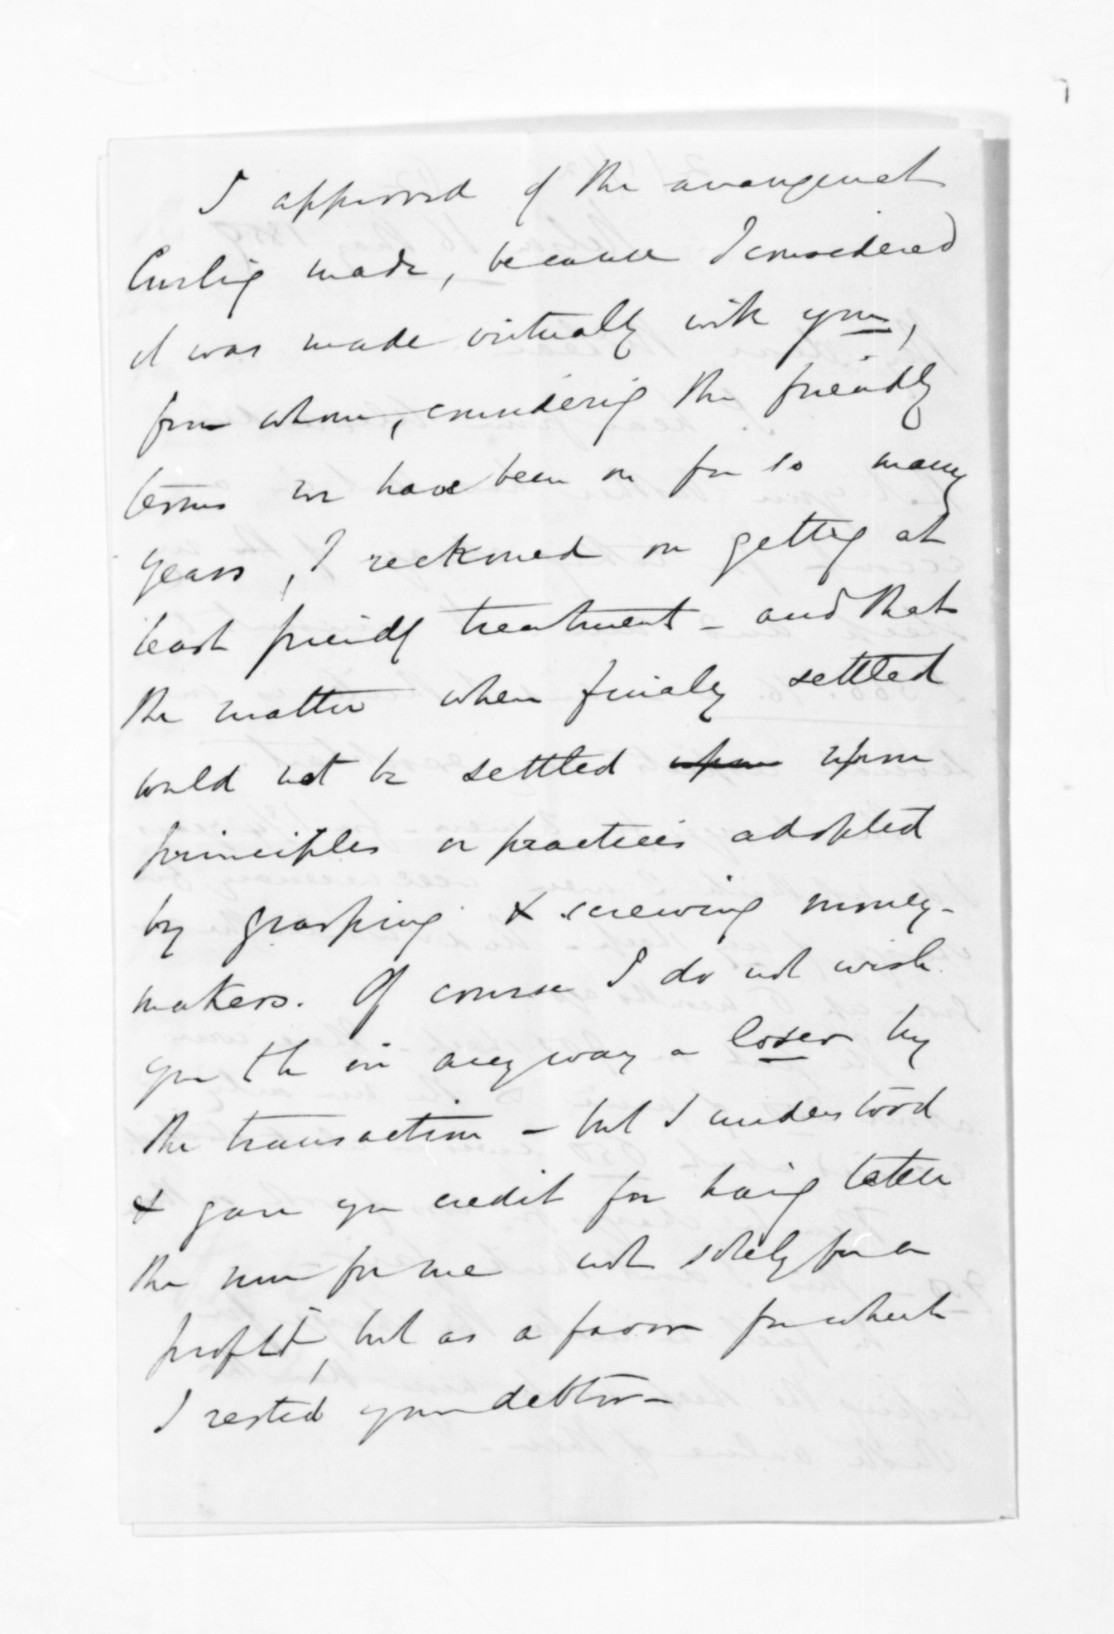 I approved of the arrangement
Curling made, because I considered
it was made virtually with you,
from whom, considering the friendly
terms we have been on for so many
years, I reckoned on getting at
least friendly treatment - and that
the matter when finaly settled
would not be settled upon upon
principles or practices adopted
by grasping & screwing money-
makers. Of course I do not wish
you to be in any way a loser by
the transaction - but I understood
& gave you credit for having taken
the run for me not solely for a
profit, but as a favor for which
I rested your debtor -